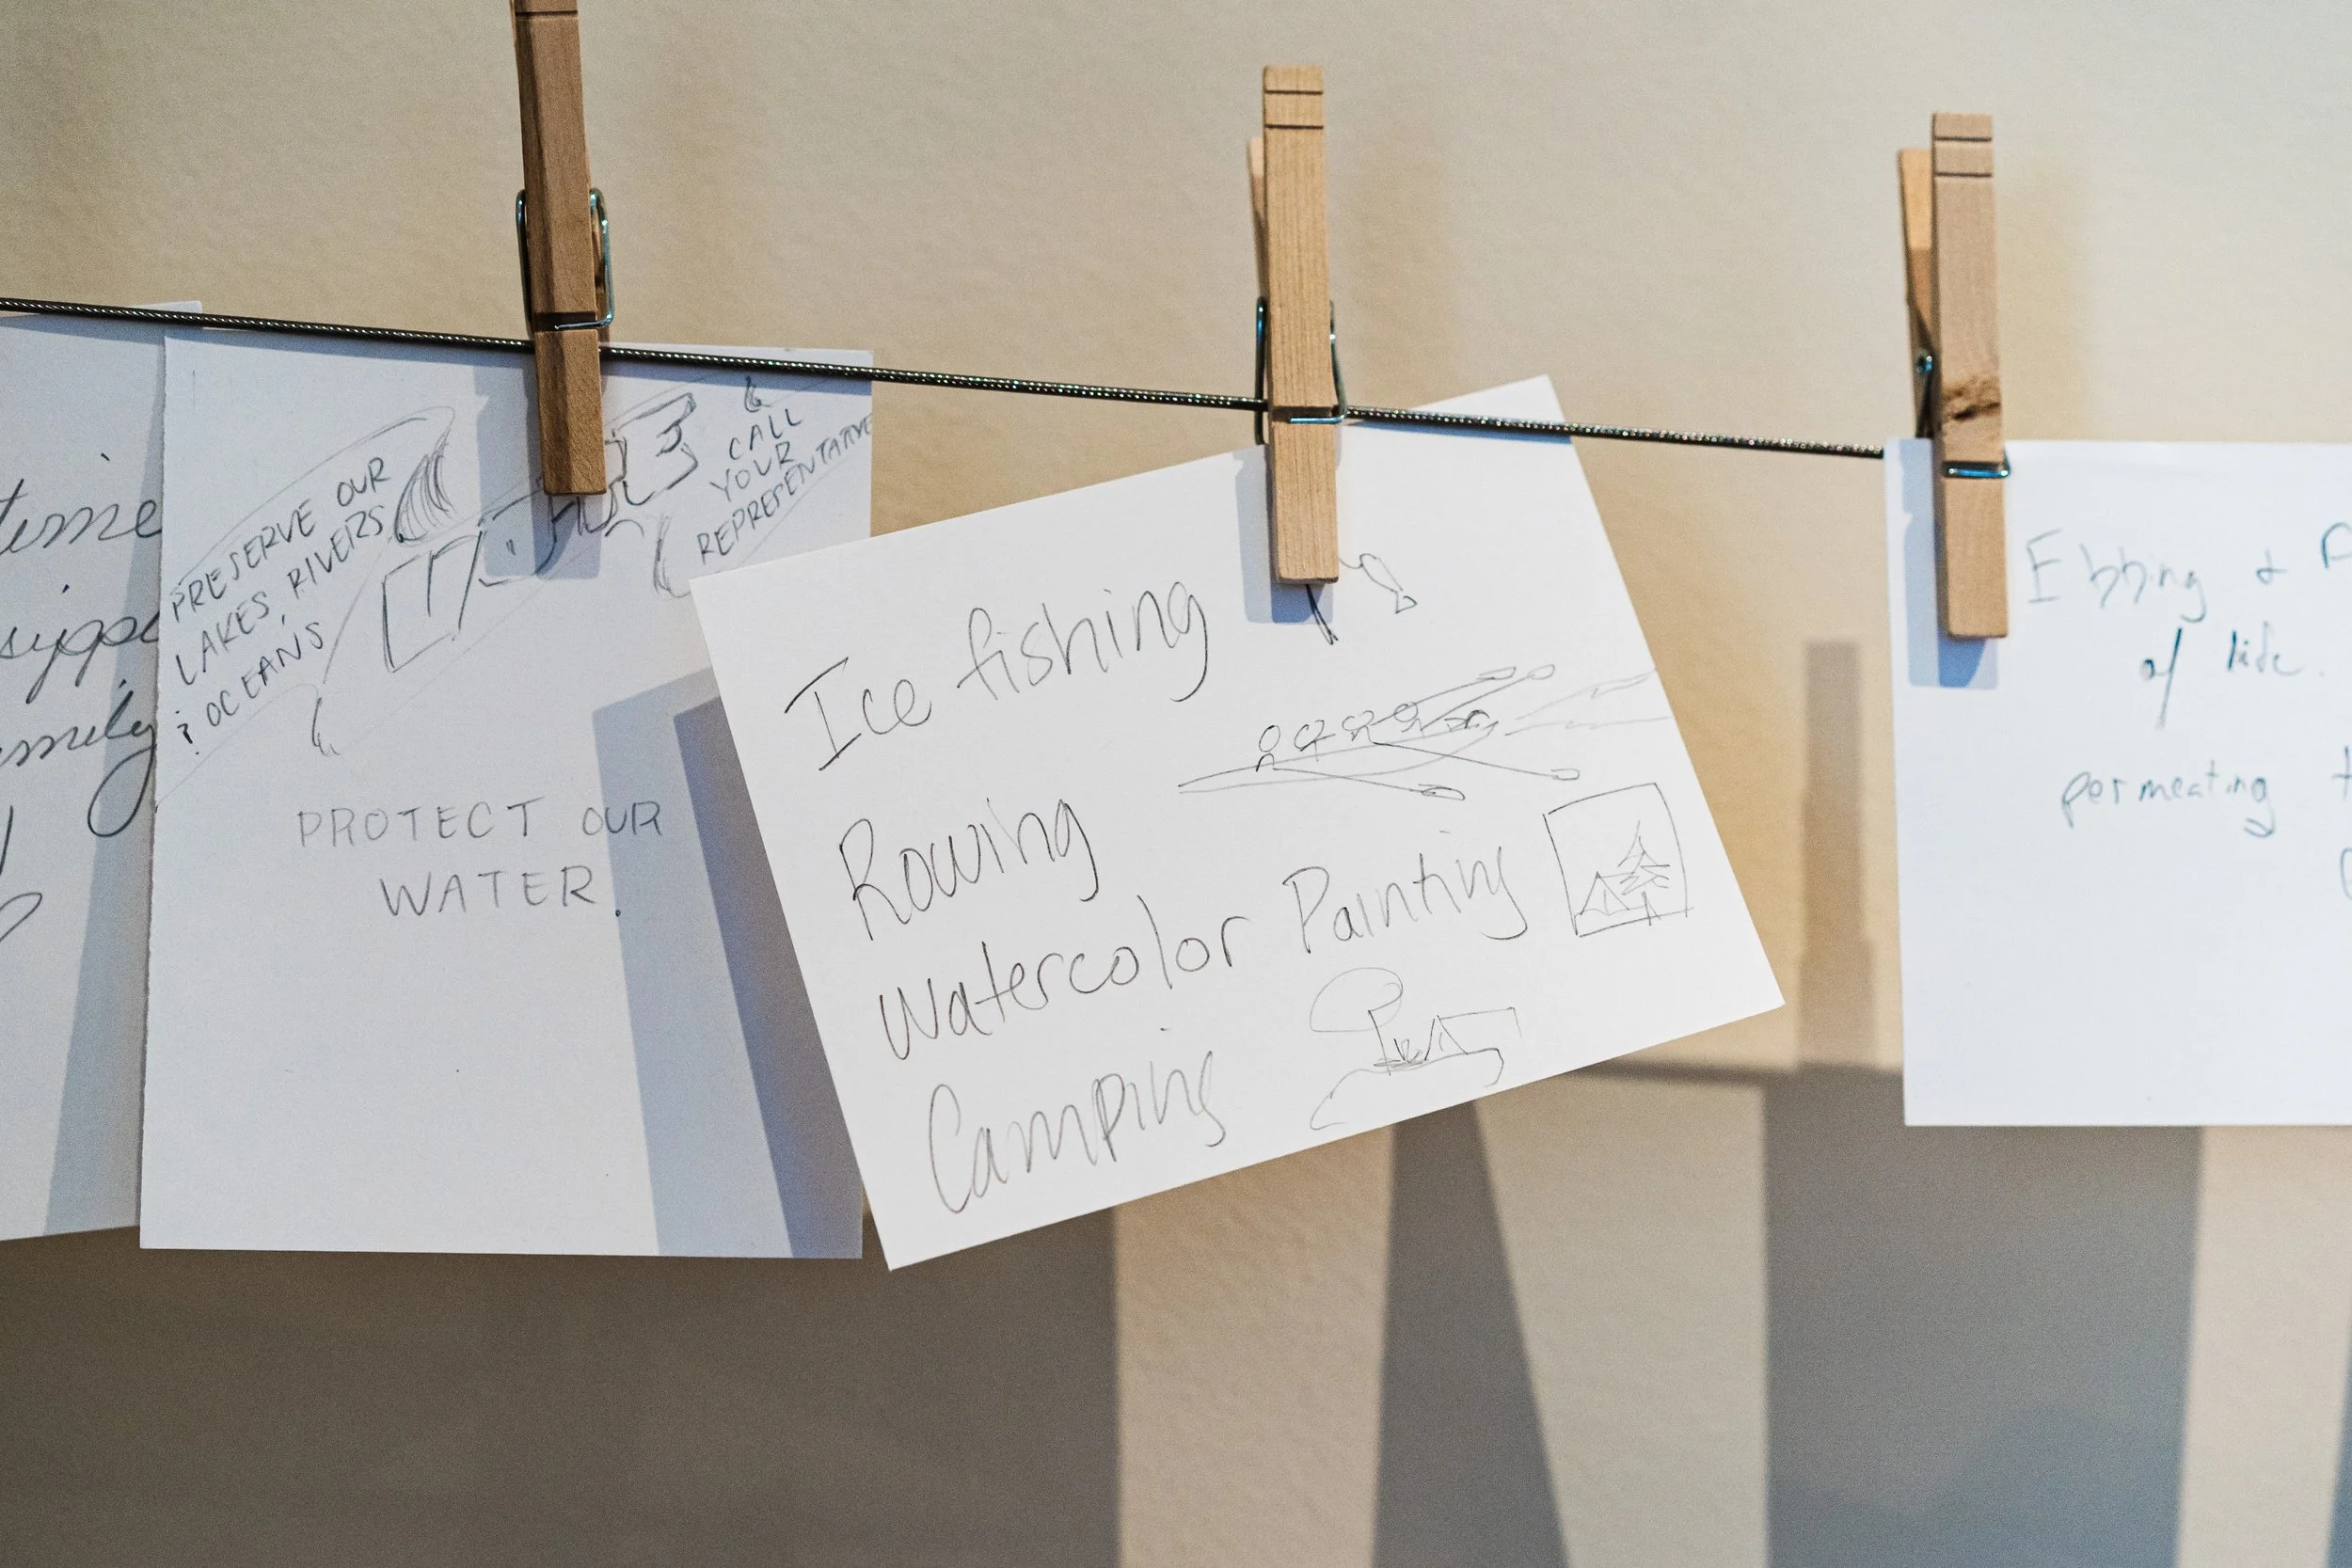 time
mily
PRESERVE OUR
LAKES, RIVERS,
& OCEANS
&
CALL
YOUR
REPRESENTATIVE
PROTECT OUR
WATER.
Ice fishing
Rowing
Watercolor Painting
Camping
Ebbing &
of life.
permeating